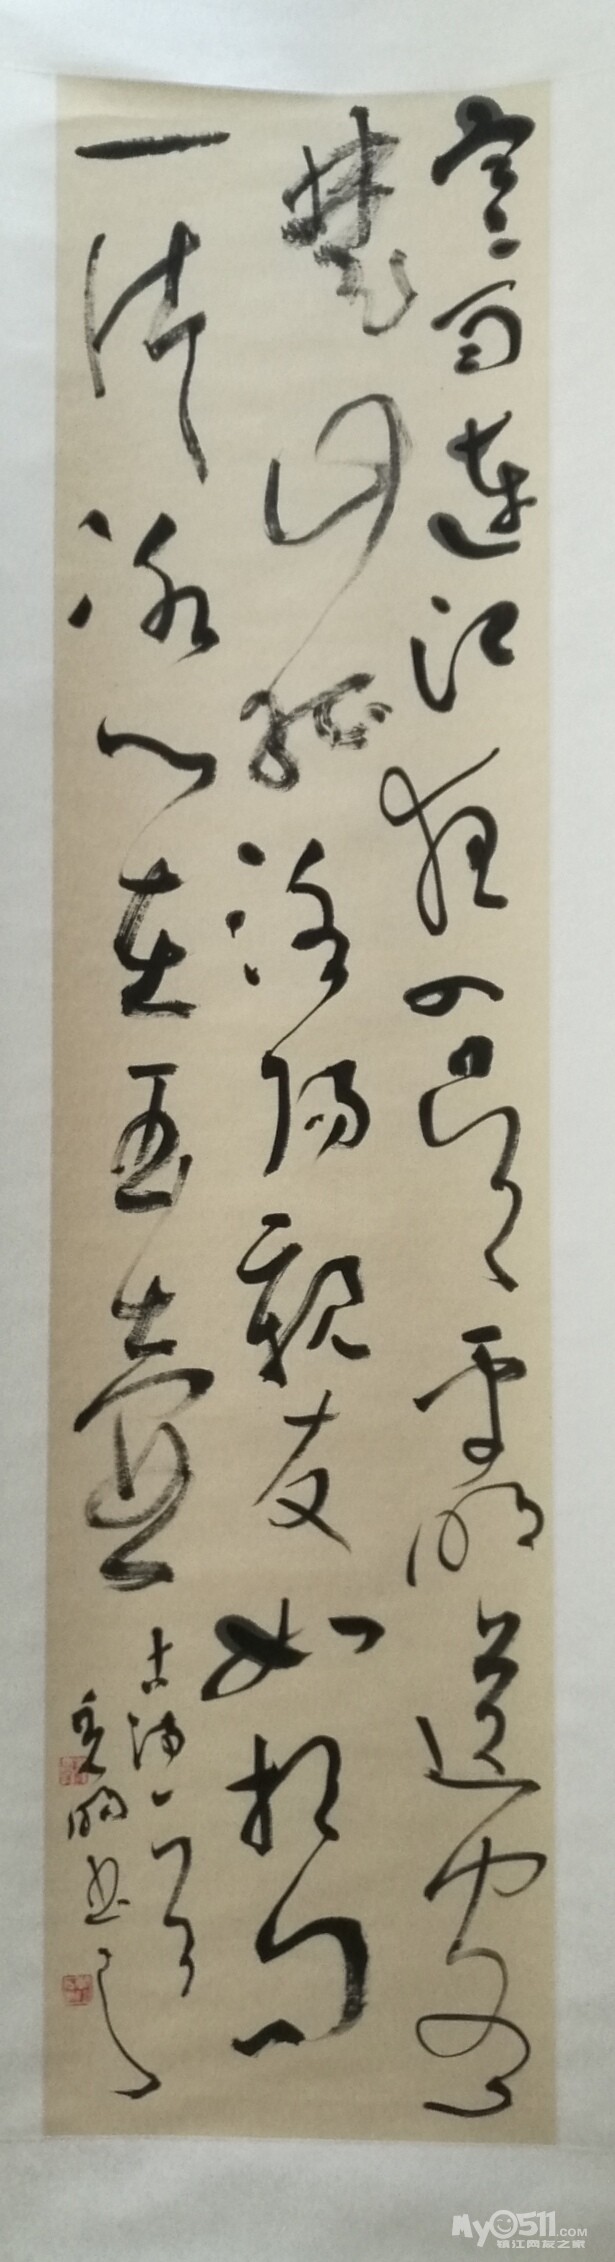 寒雨連江夜入吴平明送客
楚山孤洛阳親友如相问
一片冰心在玉壶
古诗一首
My0511.COM
镇江网友之家